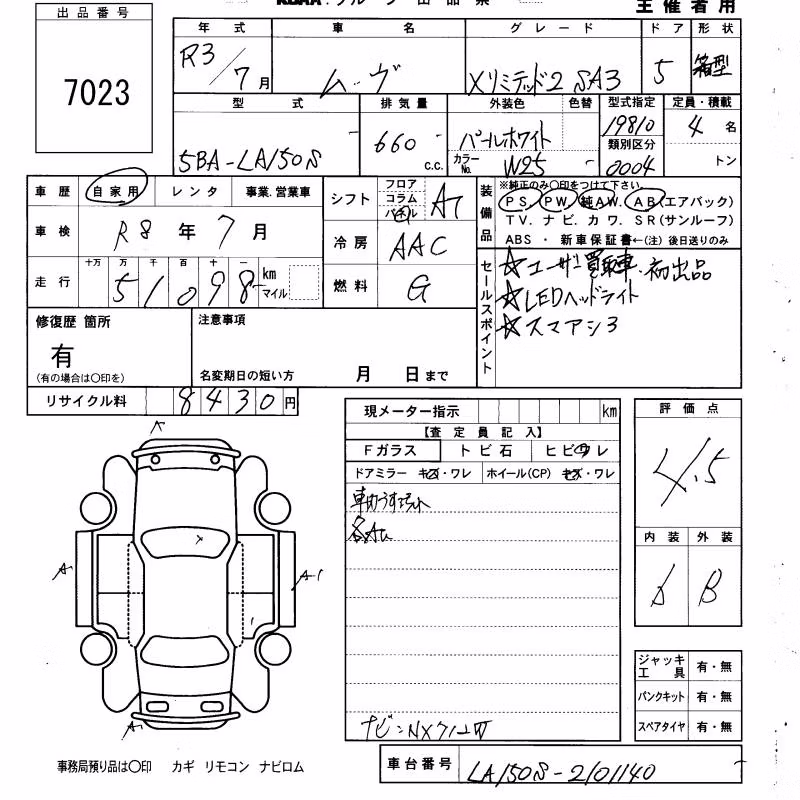 主催者用
出品番号
7023
年式 車名 グレード ドア 形状
R3/7月 ムーヴ Xリミテッド2 SA3 5 箱型
型式 排気量 外装色 色替 型式指定 定員・積載
5BA-LA150S 660 c.c. パールホワイト 19810 4名
類別区分
カラーNo. W25 0004 トン
車歴 自家用 レンタ 事業.営業車
シフト フロア コラム パネル AT
装備品
※純正のみ〇印をつけて下さい
PS. PW. 純AW. AB(エアバック)
TV. ナビ. カワ. SR(サンルーフ)
ABS ・ 新車保証書←(注) 後日送りのみ
車検 R8年7月
冷房 AAC
走行 十万 万 千 百 十 一
51098 km マイル
燃料 G
セールスポイント
☆ユーザー買取車・初出品
☆LEDヘッドライト
☆スマアシ3
修復歴 箇所
有
(有の場合は〇印を)
注意事項
名変期日の短い方 月 日まで
リサイクル料 8430円
現メーター指示 km
【査定員記入】
Fガラス トビ石 ヒビワレ
ドアミラー キズ・ワレ ホイール(CP) キズ・ワレ
各AU
ナビ:NX712W
評価点
4.5
内装 外装
B
A
A-1
A
ジャッキ工具 有・無
パンクキット 有・無
スペアタイヤ 有・無
事務局預り品は〇印 カギ リモコン ナビロム
車台番号 LA150S-2101140